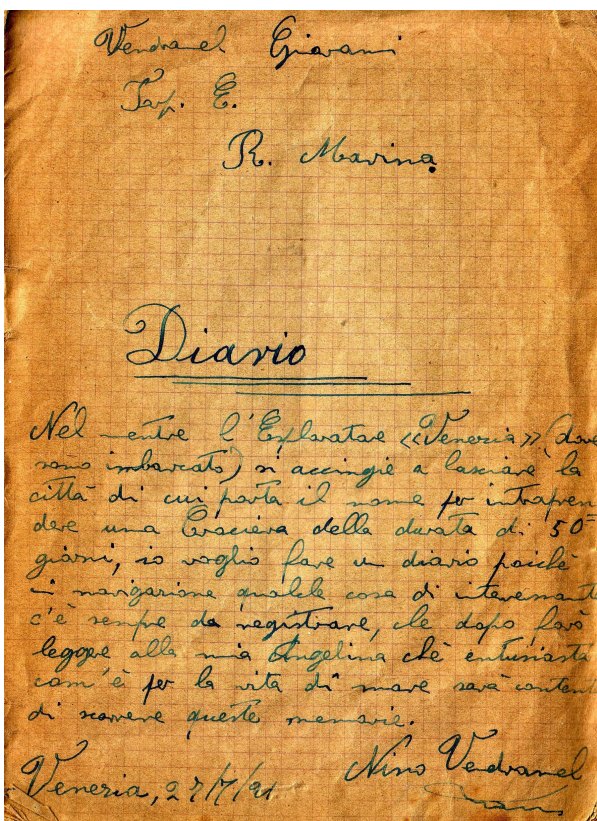 Vendramel Giovanni
E.
R. Marina
Diario
Nel mentre l'Esploratore «Venezia» (dove
sono imbarcato) si accingie a lasciare la
città di cui porta il nome per intrapren
dere una Crociera della durata di 50=
giorni, io voglio fare un diario poichè
in navigazione qualche cosa di interessant
c'è sempre da registrare, che dopo farò
leggere alla mia Angelina chè entusiasta
com'è per la vita di mare sarà content
di scorrere queste memorie.
Nino Vendramel
Venezia, 27/7/